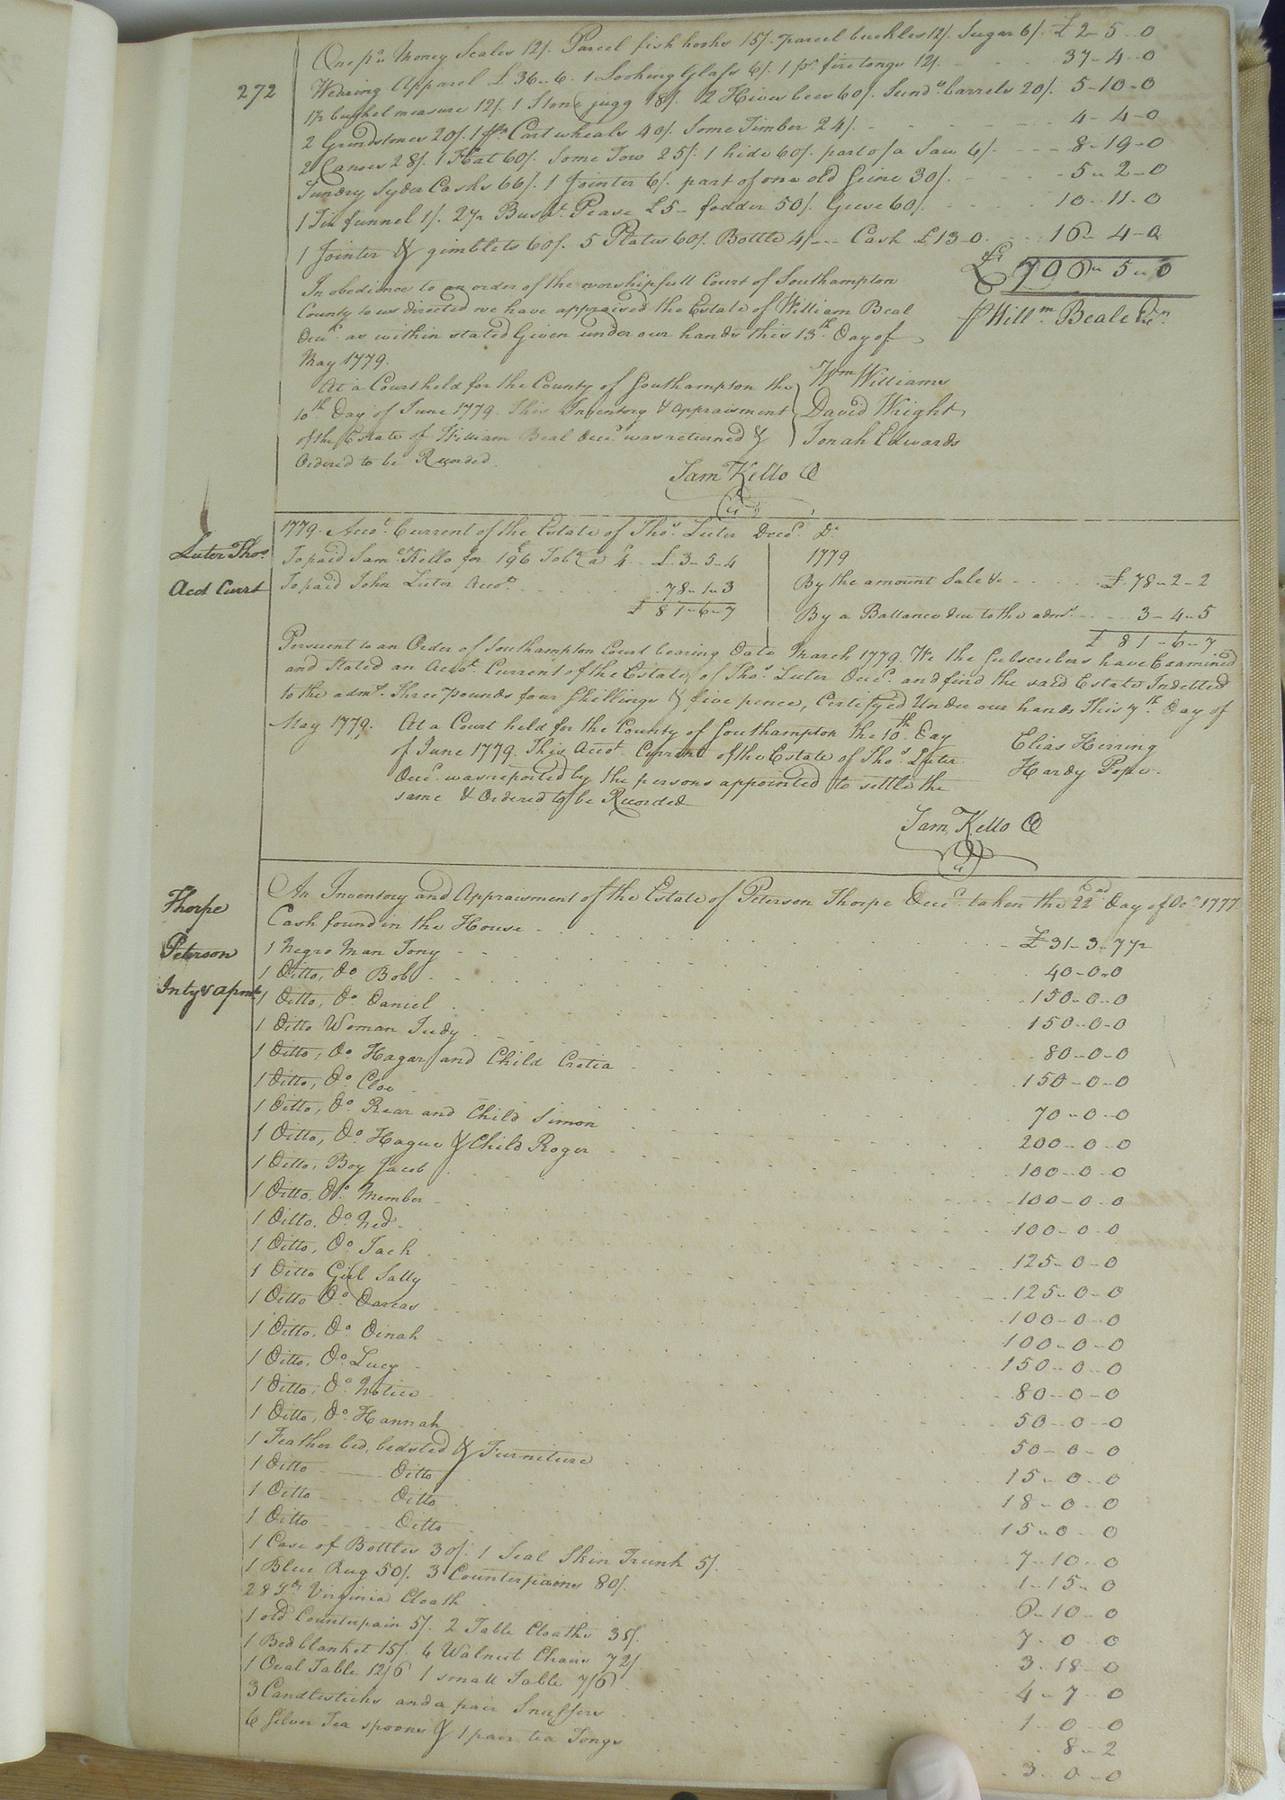 272
One pr. Money Scales 12/. Parcel fish hooks 15/. parcel buckles 12/. Sugar 6/. £ 2-5-0
Wearing Apparel £ 36-6. 1 Looking Glass 6/. 1 pr. fire tongs 12/. 37-4-0
1/2 bushel measure 12/. 1 Stone jugg 18/. 2 Hives bees 60/. Sund. barrels 20/. 5-10-0
2 Grindstones 20/. 1 pr. Cart wheals 40/. Some Timber 24/. 4-4-0
2 Canoes 28/. 1 Flat 60/. Some Tow 25/. 1 hide 60/. part of a Saw 6/. 8-19-0
Sundry Syder Casks 66/. 1 Jointer 6/. part of one old Seine 30/. 5-2-0
1 Tin funnel 1/. 27 1/2 Bush. Pease £5- fodder 50/. Geese 60/. 10-11-0
1 Jointer & gimblets 60/. 5 Plates 60/. Bottle 4/- Cash £13-0. 16-4-0
£ 706-5-0
In obedience to an order of the worshipfull Court of Southampton
County to us directed we have appraised the Estate of William Beal
Decd. as within stated Given under our hands this 13th. Day of
May 1779.
Willm. Beale
At a Court held for the County of Southampton the
10th. Day of June 1779. This Inventory & appraisment
of the Estate of William Beal Decd. was returned &
Ordered to be Recorded.
Wm Williams
David Wright
Jonah Edwards
Sam Kello C
Luter Thos.
Acct Currt
1779. Accot. Current of the Estate of Thos. Luter Decd. Dr.
To paid Saml. Kello for 196 Tobo. a £ 3-5-4
To paid John Luter Accot. 78-1-3
£ 81-6-7
1779
By the amount Sale &c £ 78-2-2
By a Ballance due to the admr. 3-4-5
£ 81-6-7
Persuent to an Order of Southampton Court bearing Date March 1779. We the Subscribers have Examined
and Stated an Accot. Current of the Estate of Thos. Luter Decd. and find the said Estate Indebted
to the admr. Three pounds four Shillings & five pence, Certifyed Under our hands This 7th. Day of
May 1779.
At a Court held for the County of Southampton the 10th Day
of June 1779. This Accot. Current of the Estate of Thos. Luter
Decd. was reported by the persons appointed to settle the
same & Ordered to be Recorded
Elias Herring
Hardy Pope.
Sam. Kello C
Thorpe
Peterson
Inty & apmt
An Inventory and Appraisment of the Estate of Peterson Thorpe Decd. taken the 22nd Day of Dec. 1777
Cash found in the House £ 31-3-7 1/2
1 Negro Man Tony 40-0-0
1 Ditto, Do. Bob 150-0-0
1 Ditto, Do. Daniel 150-0-0
1 Ditto Woman Judy 80-0-0
1 Ditto, Do Hagar and Child Cretia 150-0-0
1 Ditto, Do. Cloe 70-0-0
1 Ditto, Do. Rear and Child Simon 200-0-0
1 Ditto, Do. Hague & Child Roger 100-0-0
1 Ditto, Boy Jacob 100-0-0
1 Ditto, Do. Member 100-0-0
1 Ditto. Do. Ned. 125-0-0
1 Ditto, Do. Jack 125-0-0
1 Ditto Girl Sally 100-0-0
1 Ditto Do. Darcas 100-0-0
1 Ditto. Do Dinah 150-0-0
1 Ditto. Do. Lucy 80-0-0
1 Ditto, Do. 50-0-0
1 Ditto, Do. Hannah 50-0-0
1 Feather bed, bedsted & Furniture 15-0-0
1 Ditto Ditto 18-0-0
1 Ditto Ditto 15-0-0
1 Ditto Ditto 7-10-0
1 Case of Bottles 30/. 1 Seal Skin Trunk 5/. 1-15-0
1 Blue Rug 50/. 3 Counterpains 80/. 6-10-0
28 Yds. Virginia Cloath 7-0-0
1 old Counterpain 5/. 2 Table Cloaths 38/. 3-18-0
1 Bed blanket 15/. 6 Walnut Chairs 72/ 4-7-0
1 Oval Table 12/6 1 small Table 7/6 1-0-0
3 Candlesticks and a pair Snuffers 8-2
6 Silver Tea spoons & 1 pair tea Tongs 3-0-0